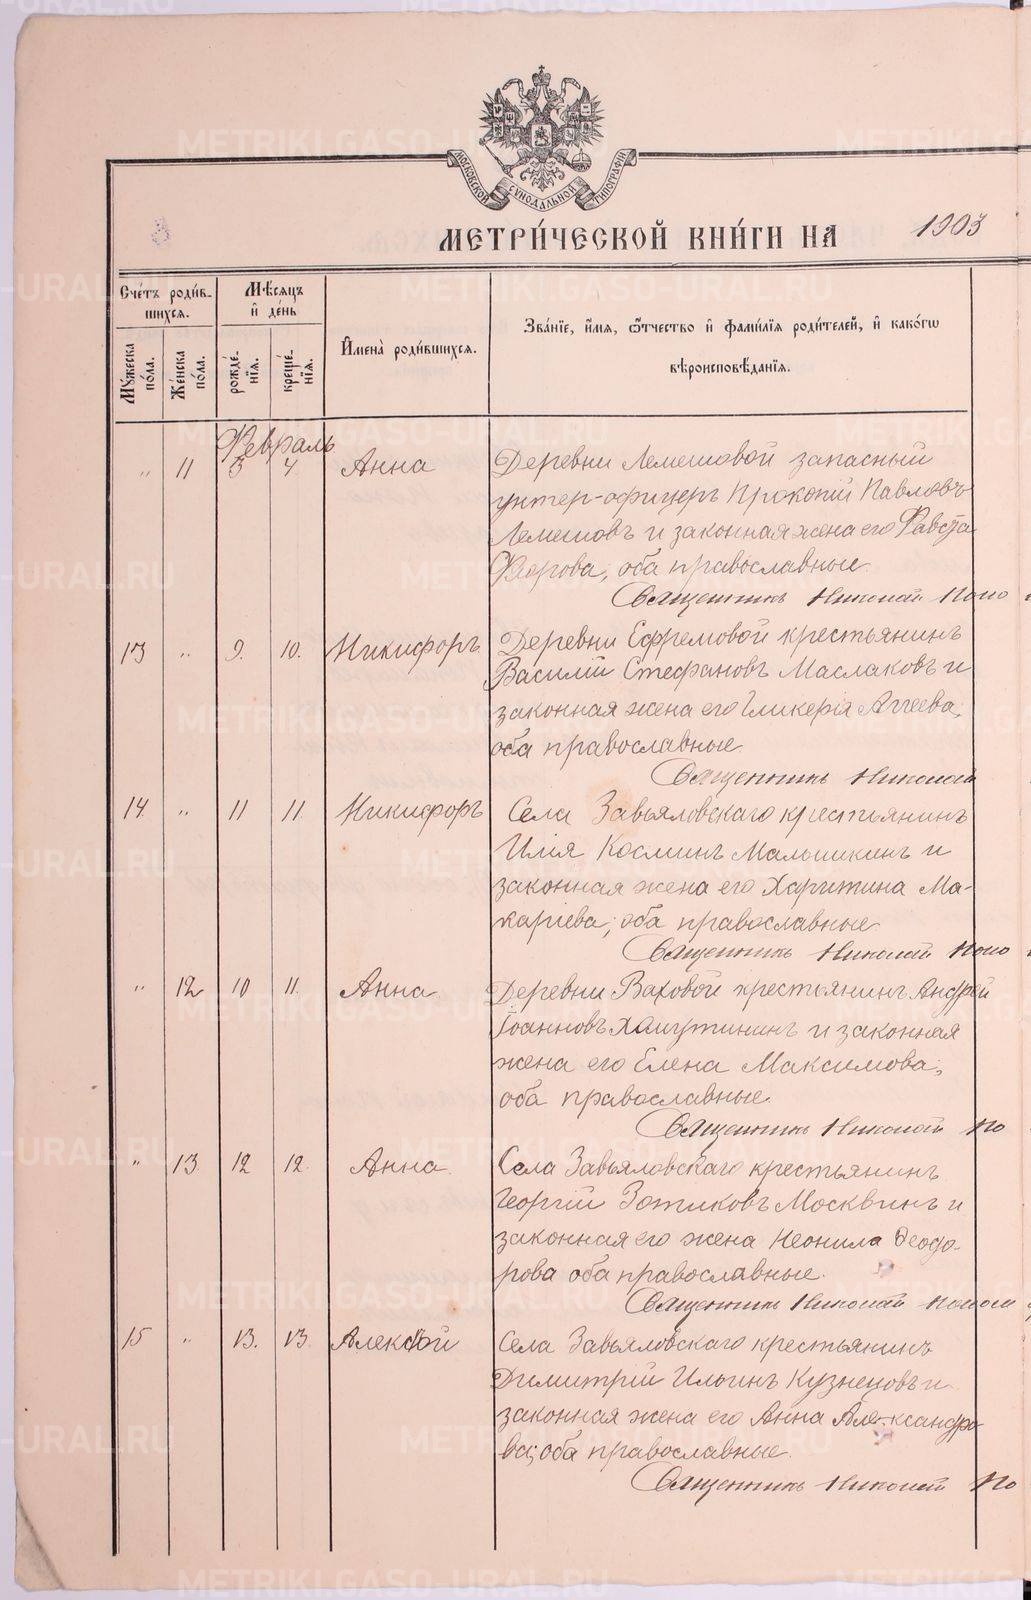 МОСКОВСКОЙ СѴНОДАЛЬНОЙ ТИПОГРАФІИ
МЕТРИ́ЧЕСКОЙ КНИ́ГИ НА 1903
Сче́тъ роди́в-
шихся.
Мѣ́сяцъ
и҆ де́нь
Мꙋ́жеска
по́ла.
Же́нска
по́ла.
рожде́-
нїѧ.
креще́-
нїѧ.
И҆мена̀ роди́вшихся.
Зва́нїе, и҆́мя, ѻ҆́тчество и҆ фами́лїя роди́телей, и҆ како́гѡ
вѣроисповѣ́данїя.
Февраль
" 11 3 4 Анна Деревни Лемешовой запасный
унтер-офицеръ Прокопій Павловъ
Лемешовъ и законная жена его Фавста
Флорова, оба православные
Священникъ Николай Попо
13 " 9. 10. Никифоръ Деревни Ефремовой крестьянинъ
Василій Стефановъ Маслаковъ и
законная жена его Гликерія Аггеева,
оба православные
Священникъ Николай
14 " 11 11 Никифоръ Села Завьяловскаго крестьянинъ
Илія Косминъ Малышкинъ и
законная жена его Харитина Ма-
каріева, оба православные
Священникъ Николай Попо
" 12 10 11. Анна Деревни Ваховой крестьянинъ Андрей
Іоанновъ Хаиутининъ и законная
жена его Елена Максимова,
оба православные.
Священникъ Николай По
" 13 12 12. Анна Села Завьяловскаго крестьянинъ
Георгій Зотиковъ Москвинъ и
законная его жена Неонила Ѳеодо-
рова оба православные.
Священникъ Николай Попов
15 " 13. 13. Алексѣй Села Завьяловскаго крестьянинъ
Димитрій Ильинъ Кузнецовъ и
законная жена его Анна Александро
ва; оба православные.
Священникъ Николай По
METRIKI.GASO-URAL.RU